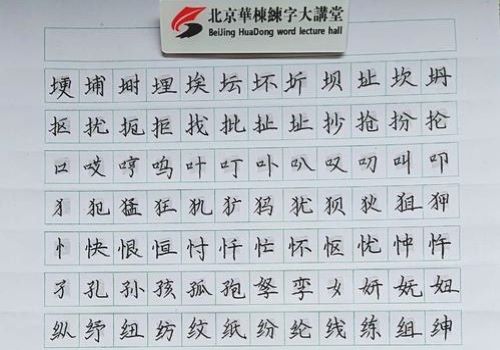 北京華棟練字大講堂
BeiJing HuaDong word lecture hall
埂 埔 埘 埋 埃 坛 坏 圻 坝 址 坎 坍
抠 扰 扼 拒 找 批 扯 址 抄 抢 扮 抡
口 哎 哼 呜 叶 叮 卟 叭 叹 叨 叫 叩
犭 犯 猛 狂 犰 犷 犸 犹 狈 狄 狙 狎
忄 快 恨 恒 忖 忏 忙 怀 怄 忧 忡 忤
孑 孔 孙 孩 孤 孢 孥 孪 女 妍 妩 妞
纵 纾 纽 纺 纹 纸 纷 纶 线 练 组 绅